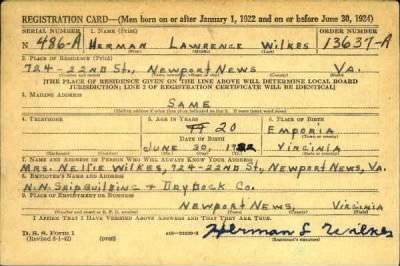 REGISTRATION CARD—(Men born on or after January 1, 1922 and on or before June 30, 1924)
SERIAL NUMBER 1. NAME (Print) ORDER NUMBER
N 486-A HERMAN LAWRENCE WILKES 13637-A
2. PLACE OF RESIDENCE (Print)
724-22ND ST., NEWPORT NEWS VA.
[THE PLACE OF RESIDENCE GIVEN ON THE LINE ABOVE WILL DETERMINE LOCAL BOARD
JURISDICTION; LINE 2 OF REGISTRATION CERTIFICATE WILL BE IDENTICAL]
3. MAILING ADDRESS
SAME
[Mailing address if other than place indicated on line 2. If same insert word same]
4. TELEPHONE 5. AGE IN YEARS 6. PLACE OF BIRTH
20 EMPORIA
DATE OF BIRTH (Town or county)
JUNE 30, VIRGINIA
(Mo.) (Day) (Yr.) (State or country)
7. NAME AND ADDRESS OF PERSON WHO WILL ALWAYS KNOW YOUR ADDRESS
MRS. NELLIE WILKES, 724-22ND ST., NEWPORT NEWS, VA.
8. EMPLOYER'S NAME AND ADDRESS
N.N. SHIPBUILDING & DRYDOCK CO.
9. PLACE OF EMPLOYMENT OR BUSINESS
NEWPORT NEWS, VIRGINIA
(Number and street or R. F. D. number) (Town) (County) (State)
I AFFIRM THAT I HAVE VERIFIED ABOVE ANSWERS AND THAT THEY ARE TRUE.
D. S. S. Form 1 Herman L. Wilkes
(Revised 6-1-42) (over) (Registrant's signature)